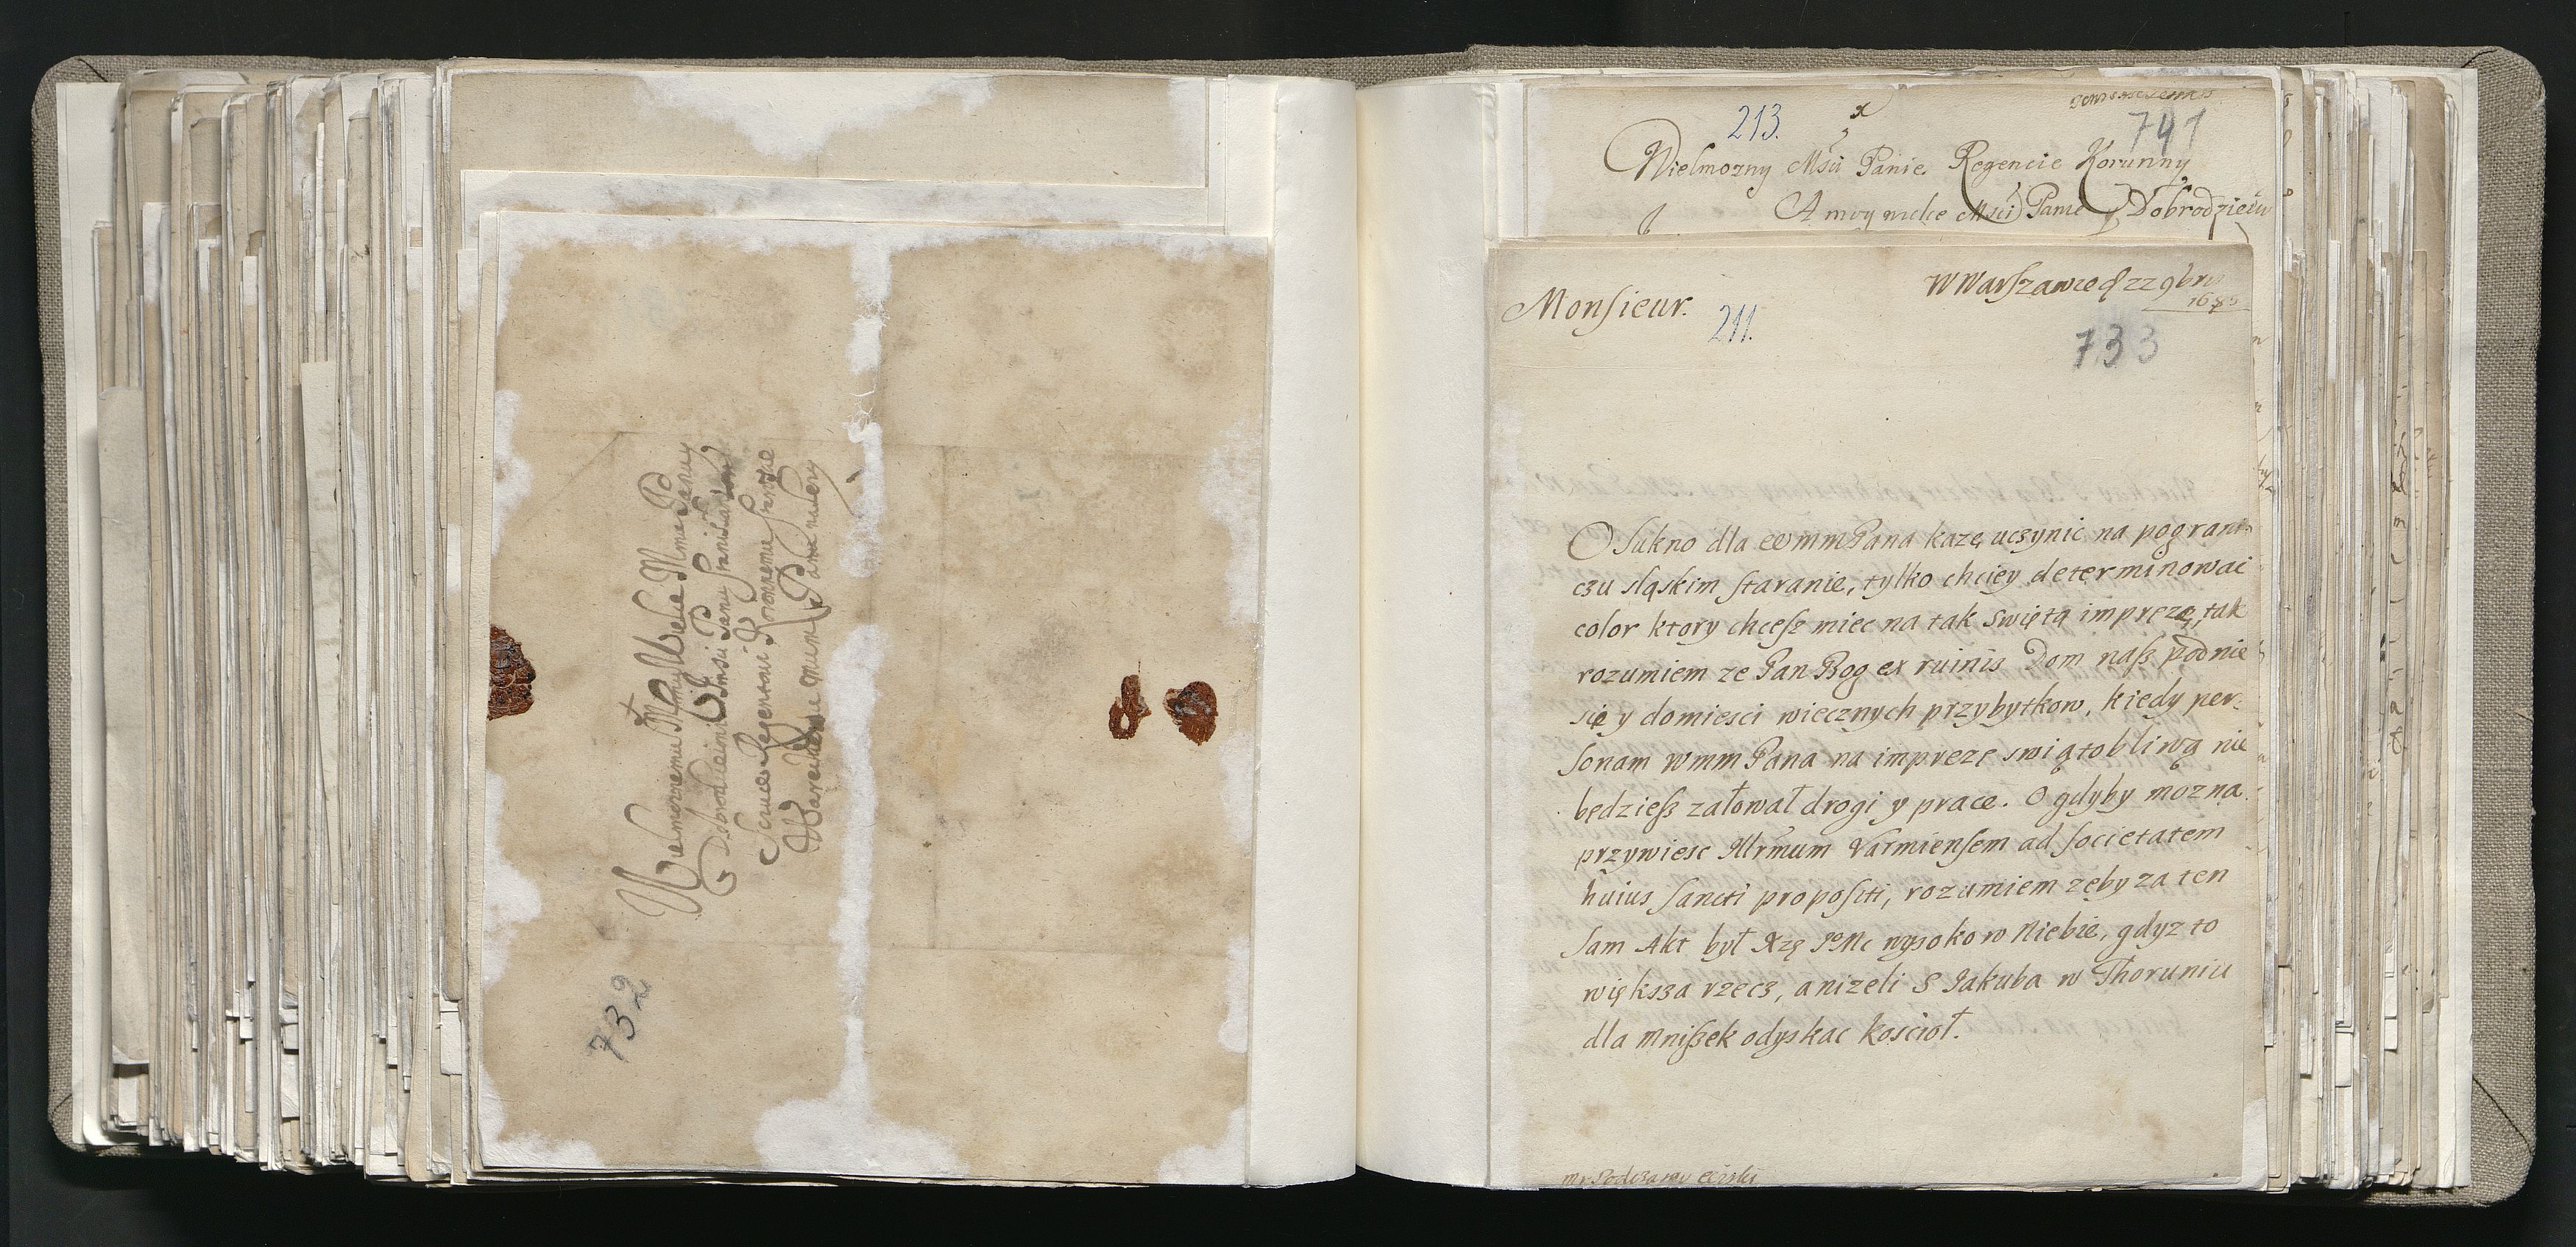 Wielmoznemu Memu Wielce Mmu Panu y
Dobrodzieiowi Jmsci Panu Stanisławowi
Regentowi Koronnemu
732
213.
741
Wielmozny Msci Panie Regencie Korunny
A moy wielce Msci Panie y Dobrodzieiu
W Warszawie d 22 9br
1685
Monsieur.
211.
733
O sukno dla wmmPana kazę uczynic na pograni
czu sląskim staranie, tylko chciey determinowac
color ktory chcesz miec na tak swiętą imprezę, tak
rozumiem ze Pan Bog ex ruinis Dom nasz podnie
się y domiesci wiecznych przybytkow, kiedy per:
sonam wmm Pana na impreze swiątobliwą nie
będziesz załował drogi y prace. O gdyby mozna
przywiesc Illrmum Varmiensem ad societatem
huius sancti propositi, rozumiem zęby za ten
sam Akt był Xzę JeMc wysoko w Niebie, gdyz to
większa rzecz, anizeli S Jakuba w Thoruniu
dla Mniszek odyskac koscioł.